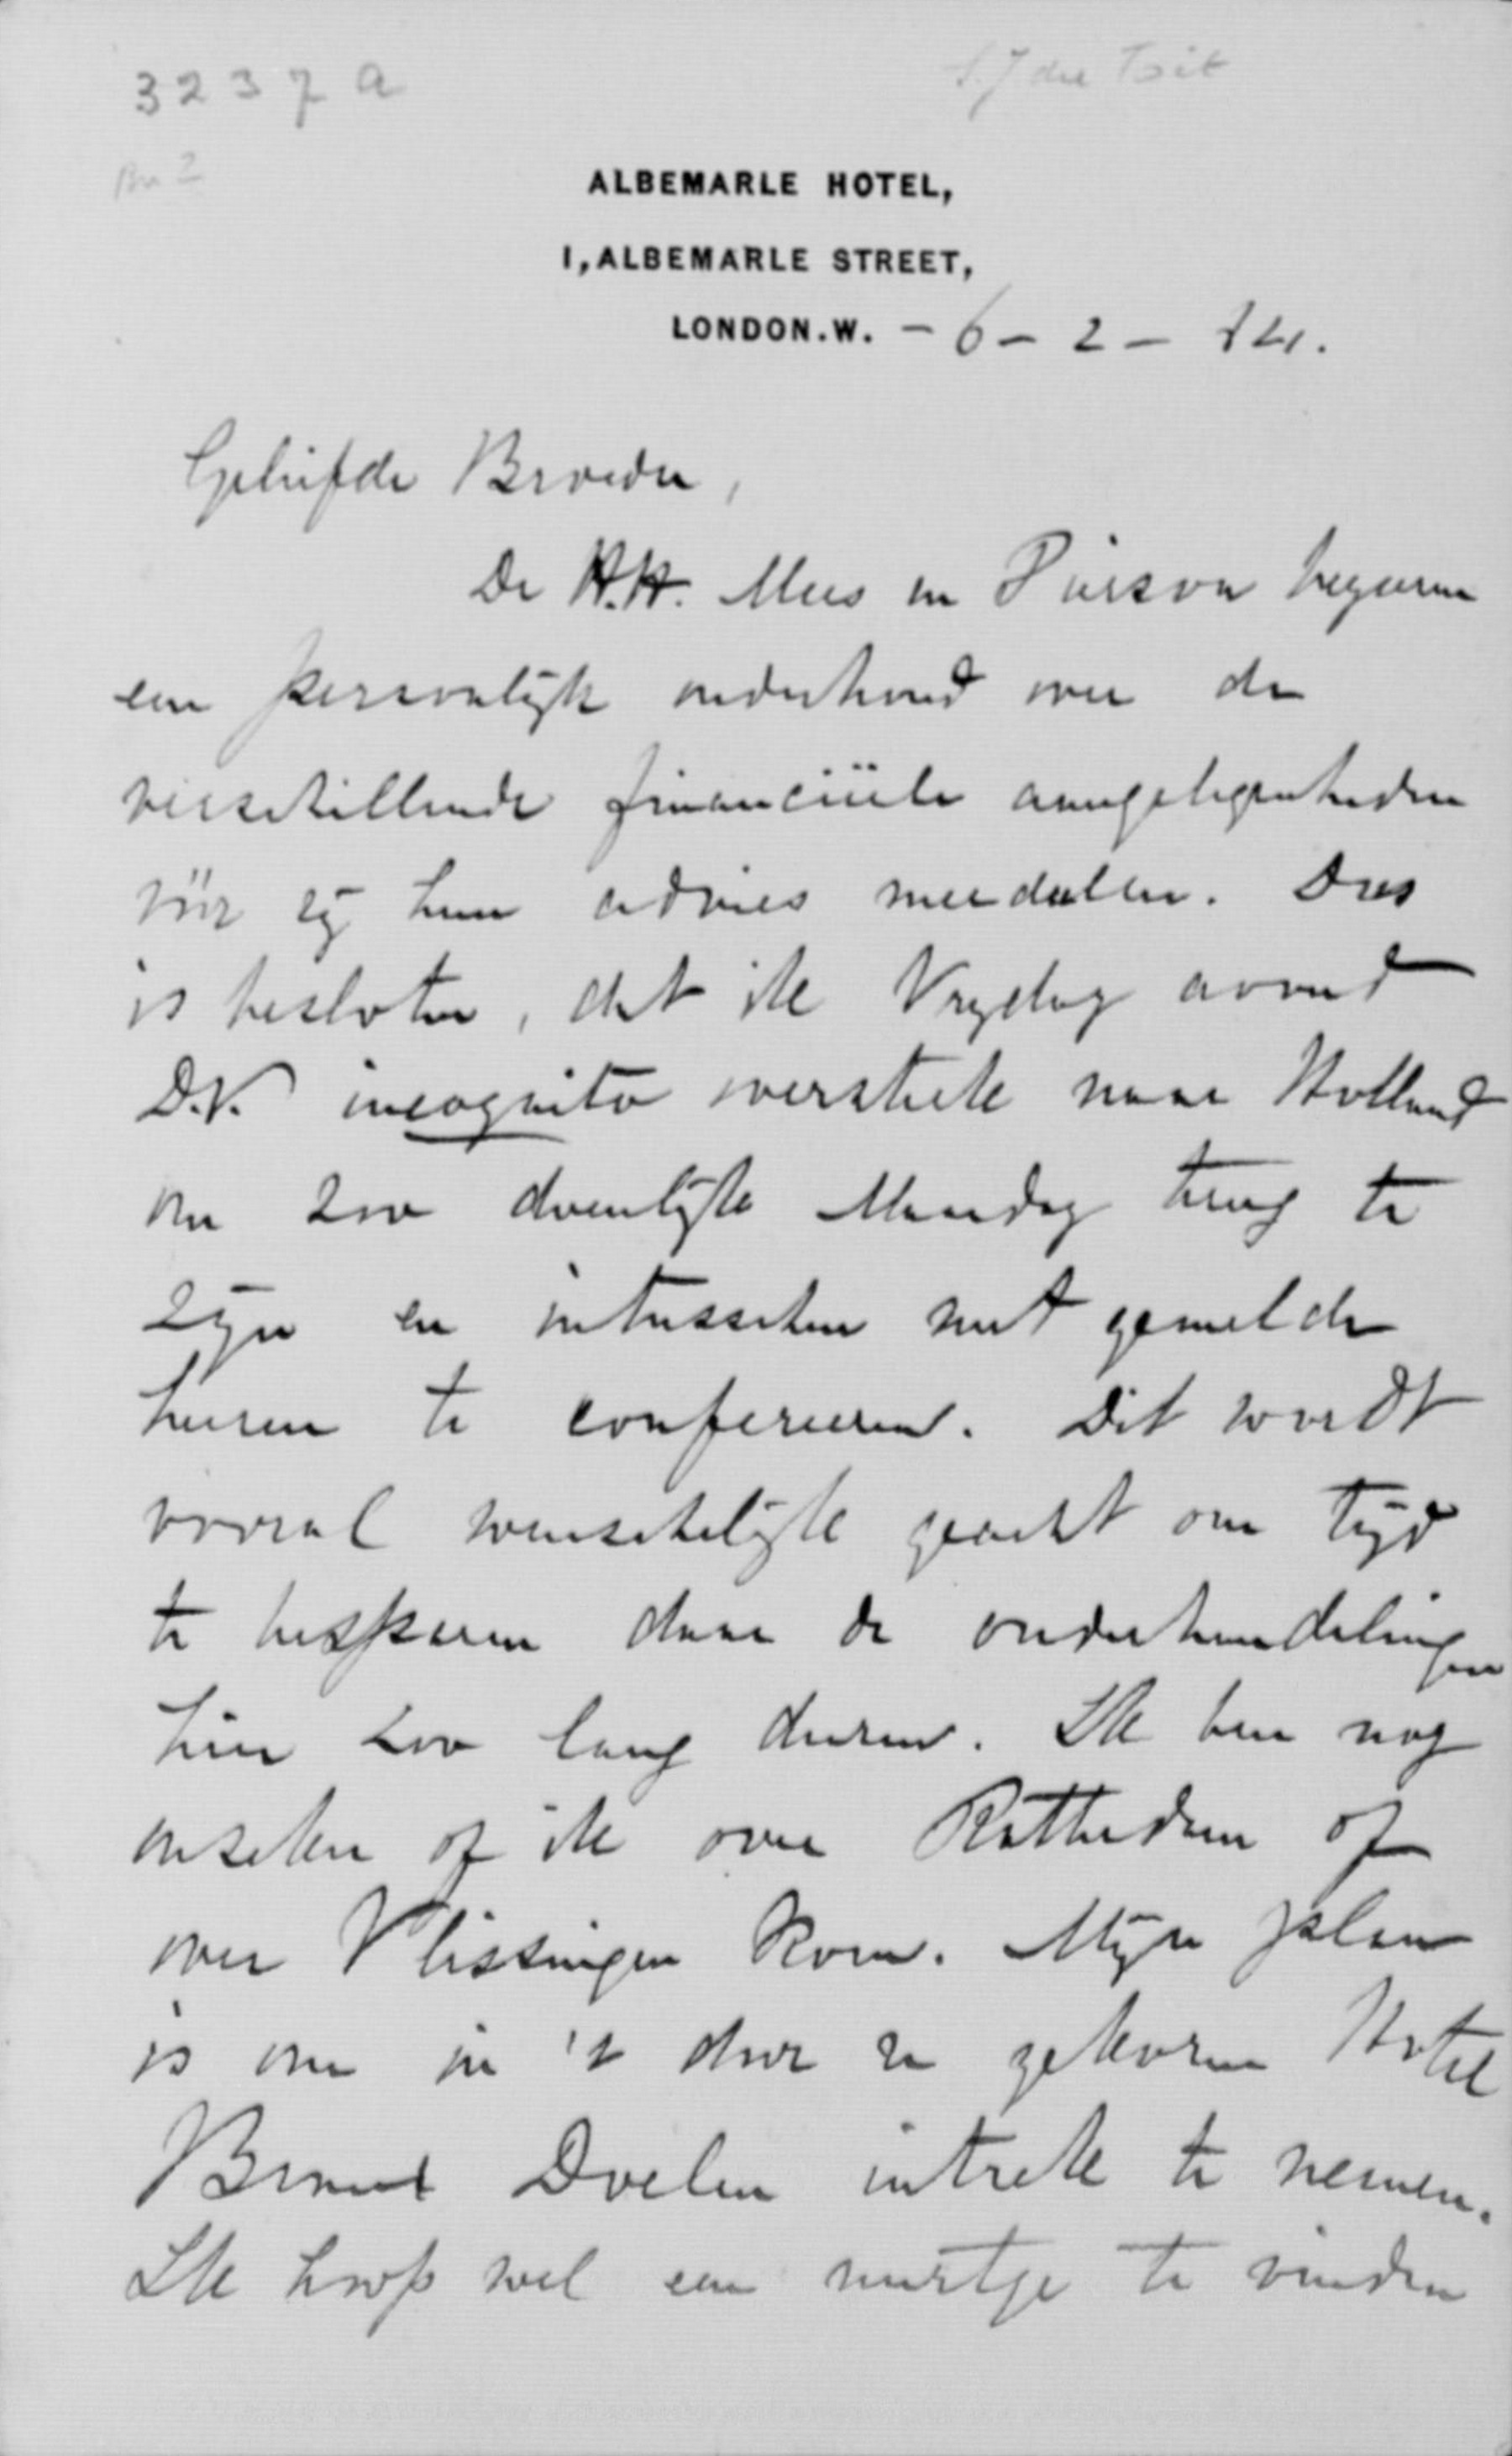 3237a
S. J du Toit
ALBEMARLE HOTEL,
1, ALBEMARLE STREET,
LONDON. W. - 6 - 2 - 84.
Geliefde Broeder,
De H.H. Mees en Pierson begeeren
een persoonlijk onderhoud over de
verschillende financiëele aangelegenheden
vóór zij hun advies meedeelen. Dus
is besloten, dat ik Vrydag avond
D.V. incognito oversteek naar Holland
om zoo doenlijk Maandag terug te
zijn en intusschen met gemelde
heeren te confereeren. Dit wordt
vooral wenschelijk geacht om tijd
te besparen daar de onderhandelingen
hier zoo lang duren. Ik ben nog
onzeker of ik over Rotterdam of
over Vlissingen kom. Mijn plan
is om in 't door u gekozen Hotel
Doelen intrek te nemen.
Ik hoop wel een uurtje te vinden